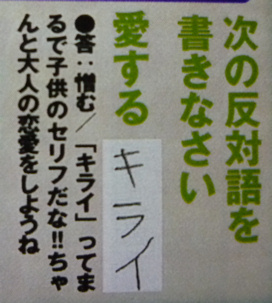 次の反対語を
書きなさい
愛する キライ
●答：憎む／「キライ」ってま
るで子供のセリフだな!!ちゃ
んと大人の恋愛をしようね